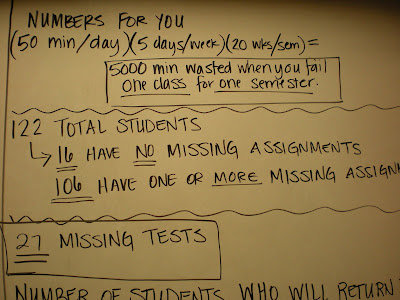 NUMBERS FOR YOU
(50 min/day)(5 days/week)(20 wks/sem)=
5000 min wasted when you fail
one class for one semester.
122 TOTAL STUDENTS
↳ 16 HAVE NO MISSING ASSIGNMENTS
106 HAVE ONE OR MORE MISSING ASSIGN
27 MISSING TESTS
NUMBER OF STUDENTS WHO WILL RETURN